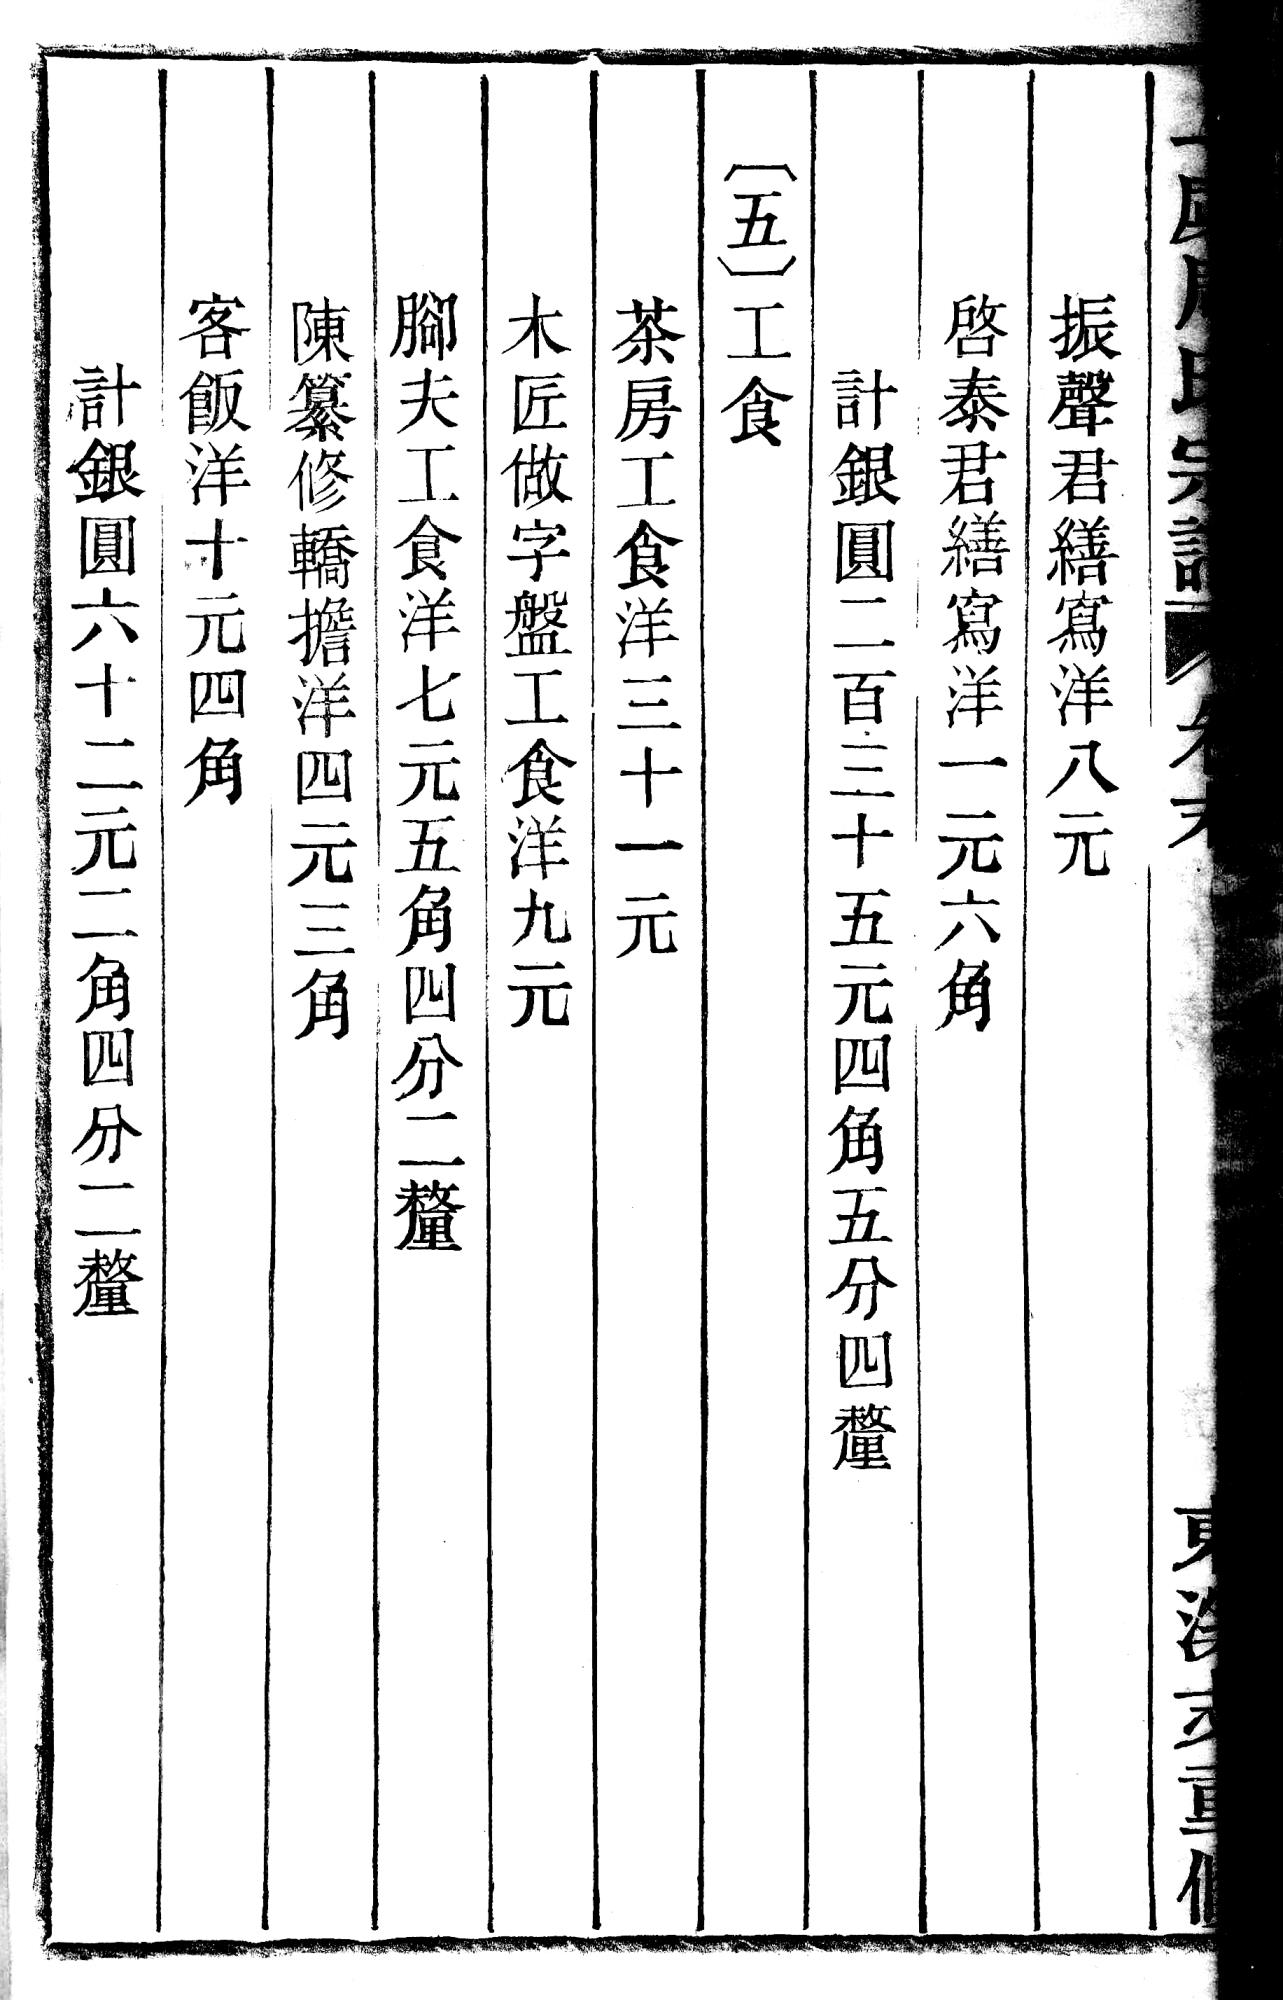 振聲君繕寫洋八元
啓泰君繕寫洋一元六角
計銀圓二百三十五元四角五分四釐
〔五〕工食
茶房工食洋三十一元
木匠做字盤工食洋九元
腳夫工食洋七元五角四分二釐
陳纂修轎擔洋四元三角
客飯洋十元四角
計銀圓六十二元二角四分二釐